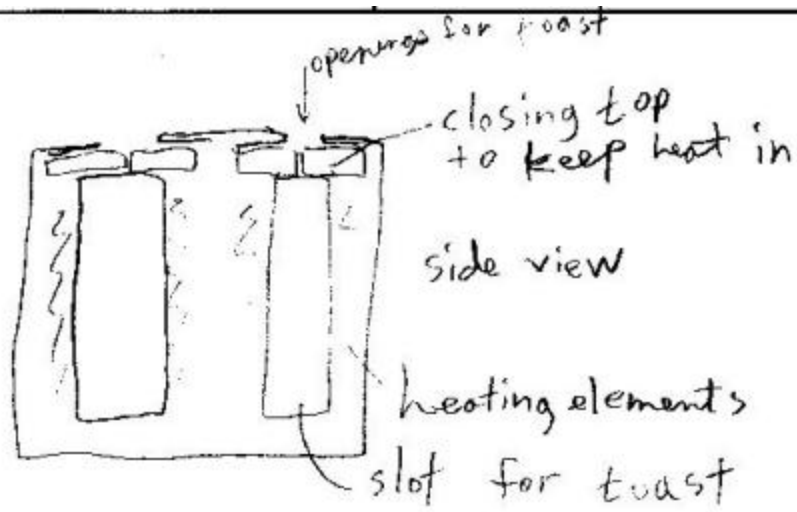 openings for toast
closing top
to keep heat in
side view
heating elements
slot for toast